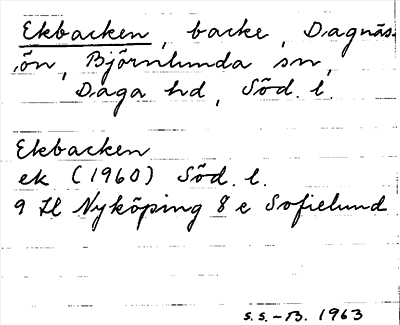 Ekbacken, backe, Dagnäs-
ön, Björnlunda sn,
Daga hd, Söd. l.
Ekbacken
ek (1960) Söd. l.
9 H Nyköping 8 e Sofielund
S.S.-B. 1963